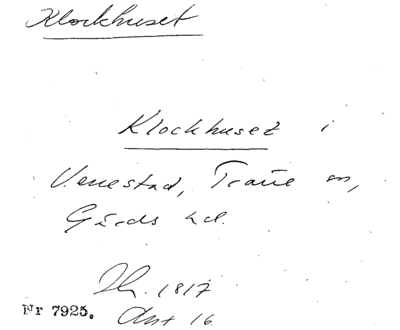 Klockhuset
Klockhuset i
Venestad, Träne sn,
Gärds hd.
1817
Nr 7925. Avs 16